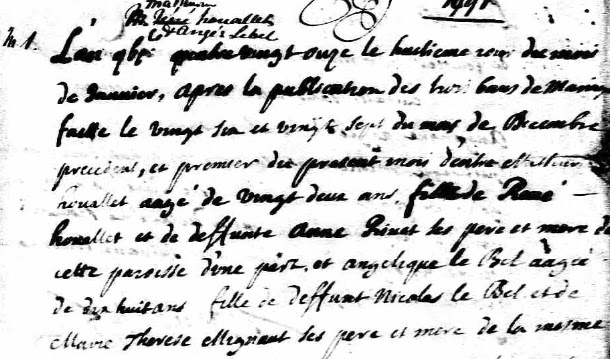 mathurin
M René houallet
& Angeq Lebel
1691
m 1.
L'an gbj^c quatre vingt onze le huitieme jour du mois
de Januier, apres la publication des trois bans de Mariage
faitte le vingt six et vingt sept du mois de Decembre
precedent, et premier du present mois d'entre Mathurin
houallet aagé de vingt deux ans, fils de René
houallet et de deffunte Anne Rivet ses pere et mere de
cette paroisse d'une part, et angelique le Bel aagée
de dix huit ans fille de deffunt Nicolas le Bel et de
Marie Therese Mignaut ses pere et mere de la mesme